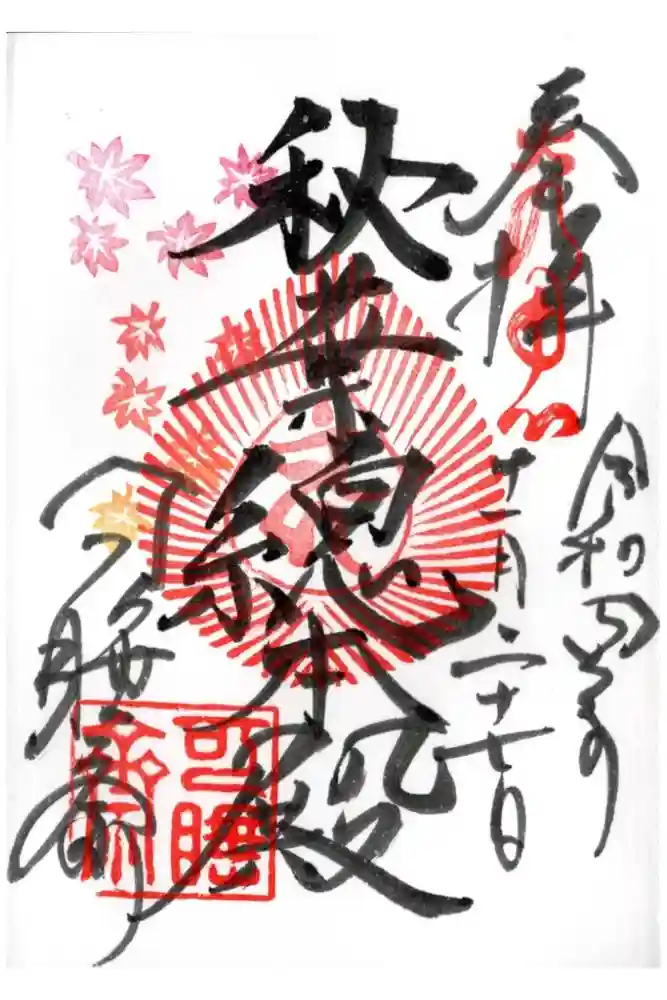 奉拝
令和四年
十一月二十七日
秋葉總本殿
可睡斎
可睡